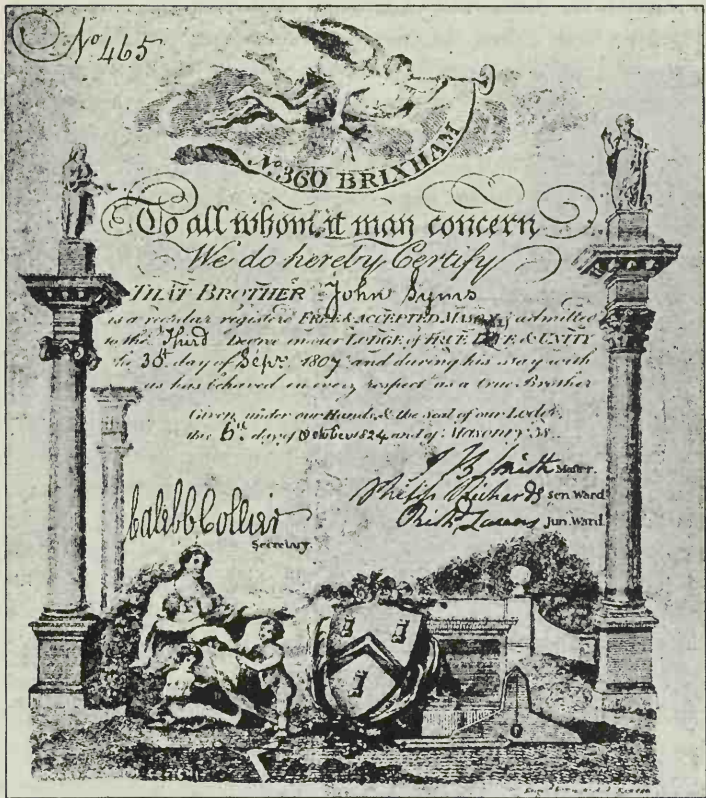 No 465
No. 360 BRIXHAM
To all whom it may concern
We do hereby Certify
THAT BROTHER John Syms
is a regular register'd FREE & ACCEPTED MASON admitted
to the Third Degree in our LODGE of TRUE LOVE & UNITY
the 30th day of Sepr. 1807 and during his stay with
us has behaved in every respect as a true Brother
Given under our Hands & the seal of our Lodge,
this 6th day of October 1824 and of MASONRY 58
J B Smith Master.
Philip Richards Sen. Ward
Jun. Ward
Caleb C Collier
Secretary.